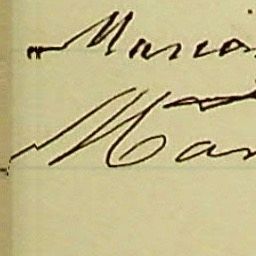 Maria
Mar